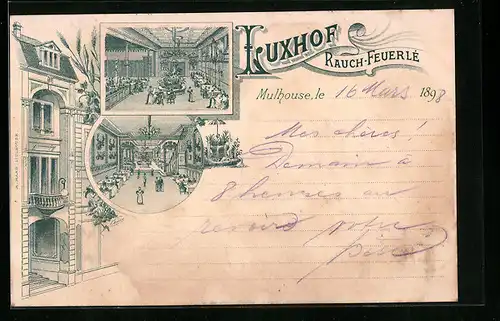 LUXHOF
RAUCH-FEUERLÉ
Mulhouse, le 16 Mars 1898
Mes chères!
Demain à
8 heures au
revoir votre